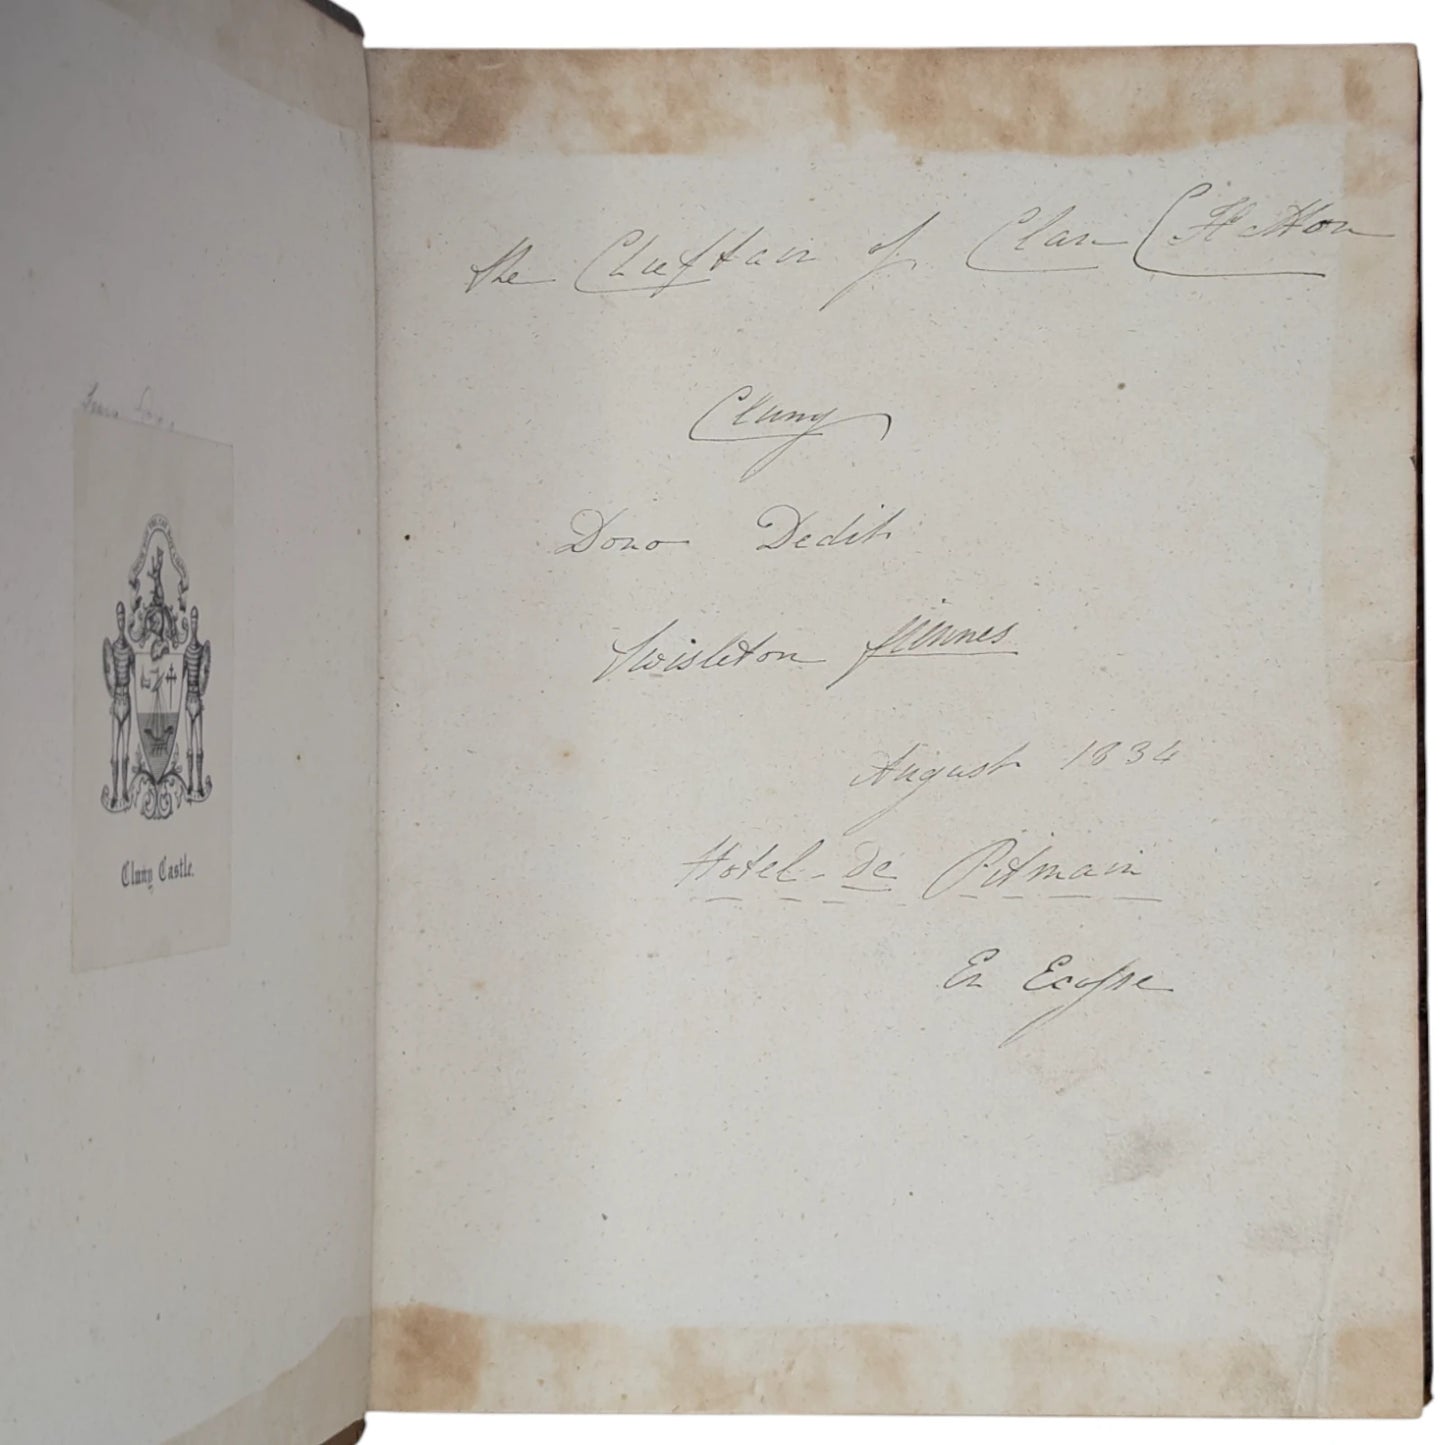 Cluny Castle.
the Chieftain of Clan Chattan
Cluny
Dono Dedit
Twisleton ffiennes
August 1834
Hotel-de Pitmain
En Ecosse